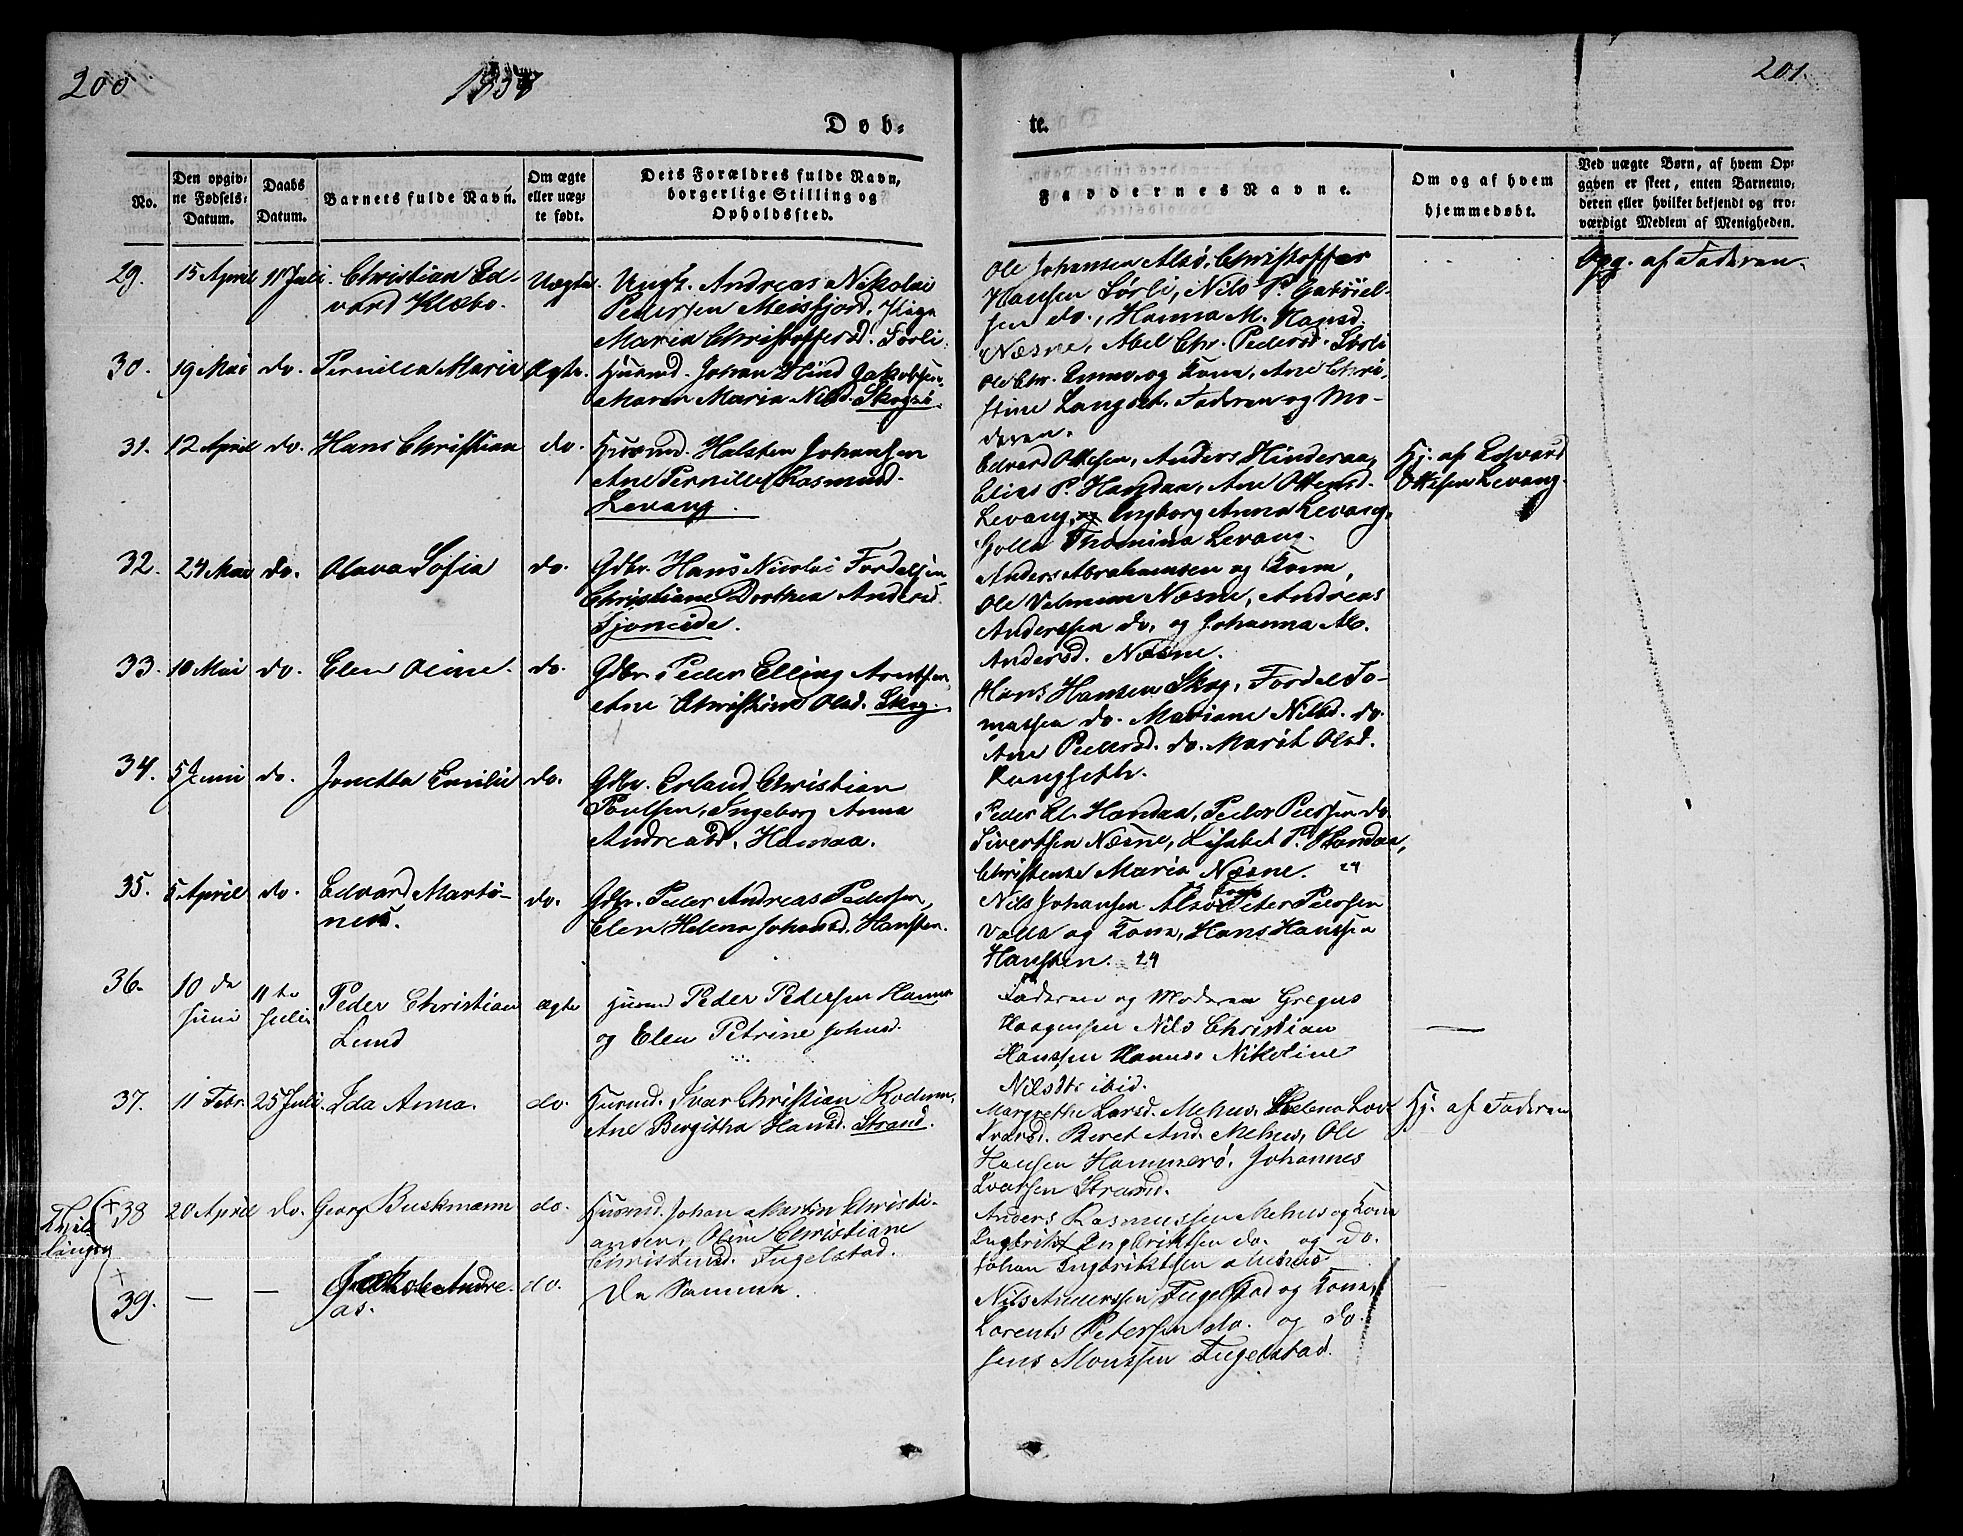 200
201.
Døb-
te.
No.
Den opgiv-
ne Fødsels-
Datum.
Daabs
Datum.
Barnets fulde Navn.
Om ægte
eller uæg-
te født.
Dets Forældres fulde Navn,
borgerlige Stilling og
Opholdssted.
Faddernes Navne.
Om og af hvem
hjemmedøbt.
Ved uægte Børn, af hvem Op-
gaven er skeet, enten Barnemo-
deren eller hvilket bekjendt og tro-
værdigt Medlem af Menigheden.
29. 15 April 11 Juli. Christian Ed-
vard Klæbo.
Uægte.
Ungk. Andreas Nikolai
Pedersen Meisfjord, Pige
Maria Christoffersd.
Ole Johansen Alsø, Christoffer
Hansen Sørli, Nils P. Gabriel-
sen do., Hanna M. Hansd.
Næsne, Abel Chr. Pedersd. Sørli
Opg. af Faderen.
30. 19 Mai do. Pernilla Maria Ægte.
Husmd. Johan Hind Jakobsen
Maren Maria Nilsd. Skogsø.
Ole Chr. og Kone, Ane Chri-
stine Langset. Faderen og Mo-
deren.
31. 12 April do. Hans Christian do.
Husmd. Halsten Johansen
Ane Pernille Rasmusd.
Levang.
Edvard Ottesen, Anders Hinderaa,
Elias P. Handaa, Ane Ottesd.
Levang, Ingborg Anna Levang,
Thomina Levang.
Hj. af Edvard
Ottesen Levang.
32. 24 Mai do. Olava Sofia do.
Gdbr. Hans Nicolai Fordelsen
Christiane Dorthea Andersd.
Sjoneide.
Anders Abrahamsen og Kone,
Ole Næsne, Andreas
Anderssen do. og Johanna M.
Andersd. Næsne.
33. 10 Mai do. Elen Oline. do.
Gdbr. Peder Elling Arntsen
Ane Christine Olsd. Skog.
Hans Hansen Skog, Fordel To-
massen do. Mariane Nilsd. do.
Ane Pedersd. do. Marit Olsd.
Langseth.
34. 5 Juni do. Jonetta Emilie do.
Gdbr. Erland Christian
Poulsen, Ingeborg Anna
Andreasd. Hamaa.
Peder El. Handaa, Peder Peersen do.
Sivertsen Næsne, Lisabet P. Handaa,
Christense Maria Næsne. 24
35. 5 April do. Edvard Marti-
nus.
do.
Gdbr. Peder Andreas Pedersen,
Elen Helena Johansd. Hansten.
Nils Johansen Alsø Peter Peersen
Valla og Kone, Hans Hanssen
Hansten. 24
36. 10de
Juni
11te
Juli
Peder Christian
Lund
ægte
Husmd Peder Pedersen
og Elen Petrine Johnsd.
Faderen og Moderen Gregus
Haagensen Nils Christian
Hanssen Nikoline
Nilsdtr ibid.
37. 11 Febr. 25 Juli. Ida Anna. do.
Husmd. Ivar Christian
Ane Bergitha Hansd. Strand.
Margrethe Larsd. Mehus, Helena Lov.
Ivarsd. Beret And. Mehus, Ole
Hansen Hammerø, Johannes
Ivarsen Strand.
Hj. af Faderen
+38 20 April do. Georg Buskmann do.
Husmd. Johan Martin Christi-
ansen, Oline Christiane
Christensd. Fugelstad.
Anders Rasmussen Mehus og Kone
Ingbrikt Ingbriktsen do. og do.
Johan Ingbriktsen Mehus
+
39. — — Jakob Andre-
as.
do.
De Samme.
Nils Anderssen Fugelstad og Kone,
Lorents Petersen do. og do.
Jens Monssen Fugelstad.